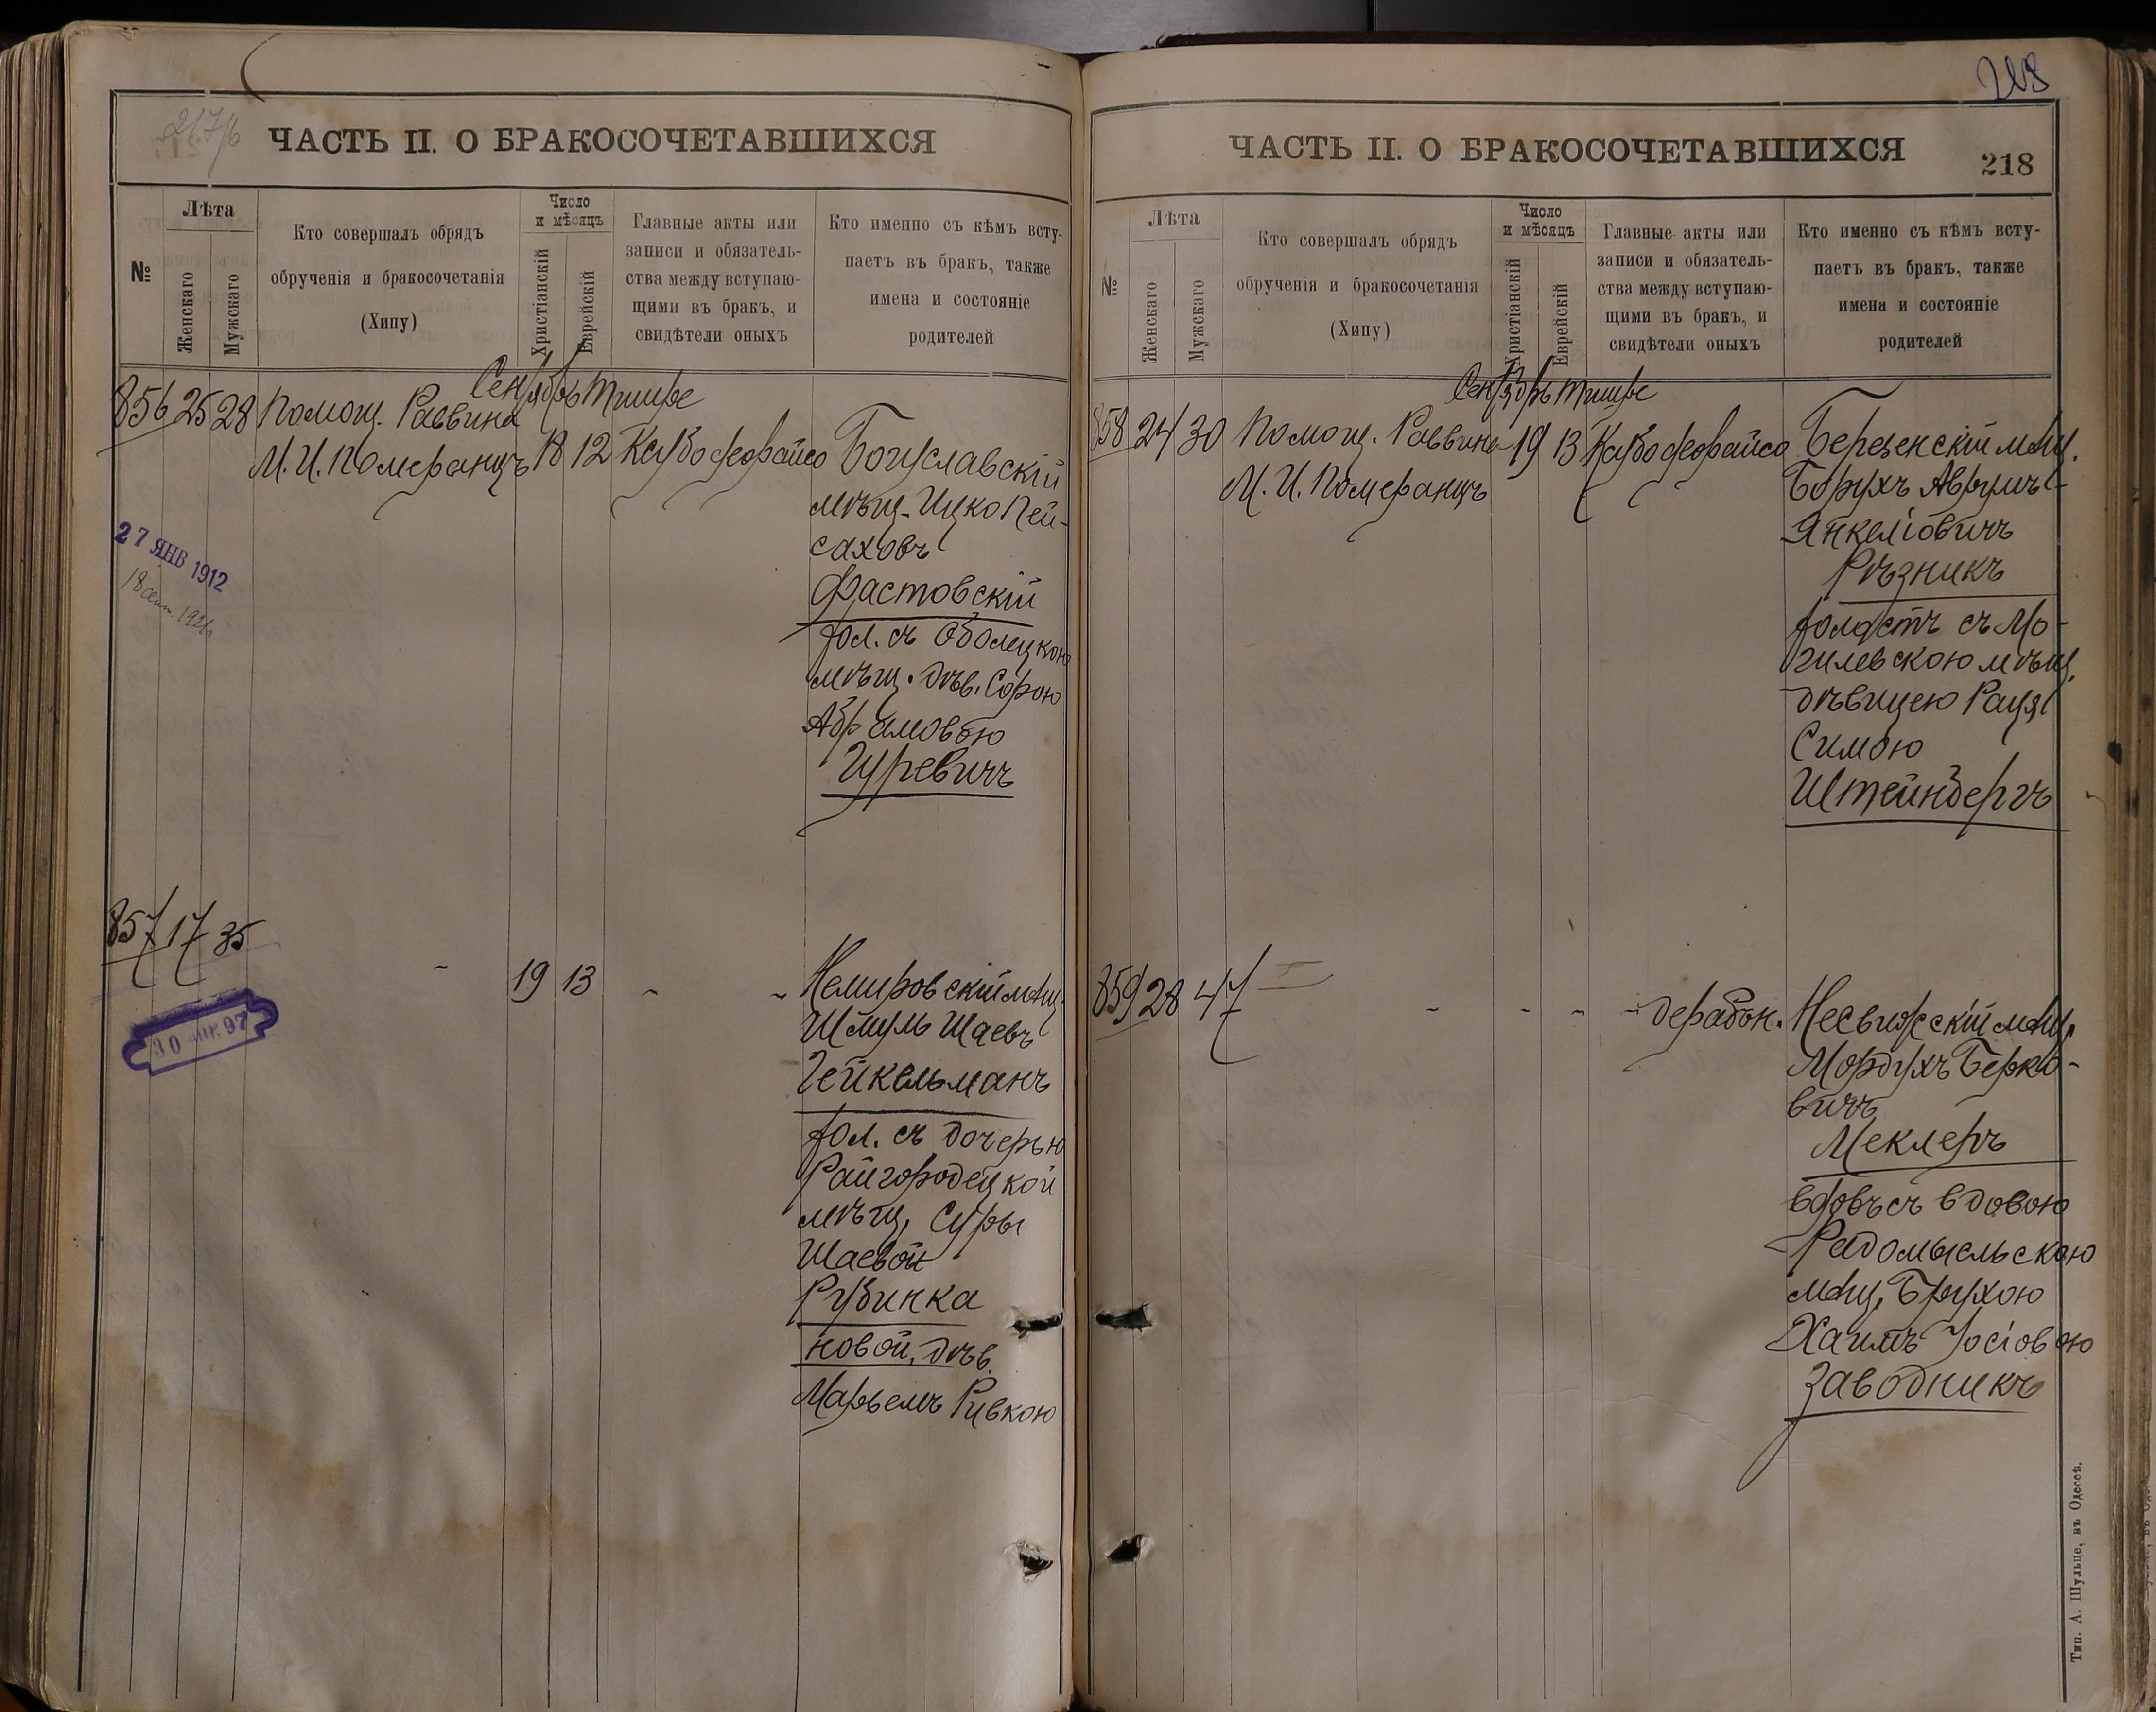 217/б
ЧАСТЬ II. О БРАКОСОЧЕТАВШИХСЯ
№
Лѣта
Женскаго
Мужскаго
Кто совершалъ обрядъ
обрученія и бракосочетанія
(Хипу)
Число
и мѣсяцъ
Христіанскій
Еврейскій
Главные акты или
записи и обязатель-
ства между вступаю-
щими въ бракъ, и
свидѣтели оныхъ
Кто именно съ кѣмъ всту-
паетъ въ бракъ, также
имена и состояніе
родителей
Сентябрь Тишре
856 25 28 Помощ. Раввина
М. И. Померанцъ 18 12 Каубофорайсо Богуславскій
мѣщ. Ицко Пей-
саховъ
Фастовскій
хол. съ Оболецкою
мѣщ. дѣв. Сорою
Абрамовою
Гуревичъ
27 ЯНВ 1912
857 17 35
19 13
Немировскій мѣщ.
Шмуль Шаевъ
Гейкельманъ
хол. съ дочерью
Райгородецкой
мѣщ. Суры
Шаевой
Рубинка
новой, дѣв.
Марьемъ Ривкою
30 97
218
ЧАСТЬ II. О БРАКОСОЧЕТАВШИХСЯ
218
№
Лѣта
Женскаго
Мужскаго
Кто совершалъ обрядъ
обрученія и бракосочетанія
(Хипу)
Число
и мѣсяцъ
Христіанскій
Еврейскій
Главные акты или
записи и обязатель-
ства между вступаю-
щими въ бракъ, и
свидѣтели оныхъ
Кто именно съ кѣмъ всту-
паетъ въ бракъ, также
имена и состояніе
родителей
Сентябрь Тишре
858 24 30 Помощ. Раввина 19 13 Каубофорайсо Березенскій мѣщ.
М. И. Померанцъ
Борухъ Аврумъ-
Янкеліовичъ
Рѣзникъ
холостъ съ Мо-
гилевскою мѣщ.
дѣвицею Раця
Симою
Штейнбергъ
859 28 47
дерабон. Несвижскій мѣщ.
Мордухъ Берко-
вичъ
Меклеръ
вдовъ съ вдовою
Радомысльскою
мѣщ. Брухою
Хаимъ Іосіовою
Заводникъ
Тип. А. Шульце, въ Одессѣ.